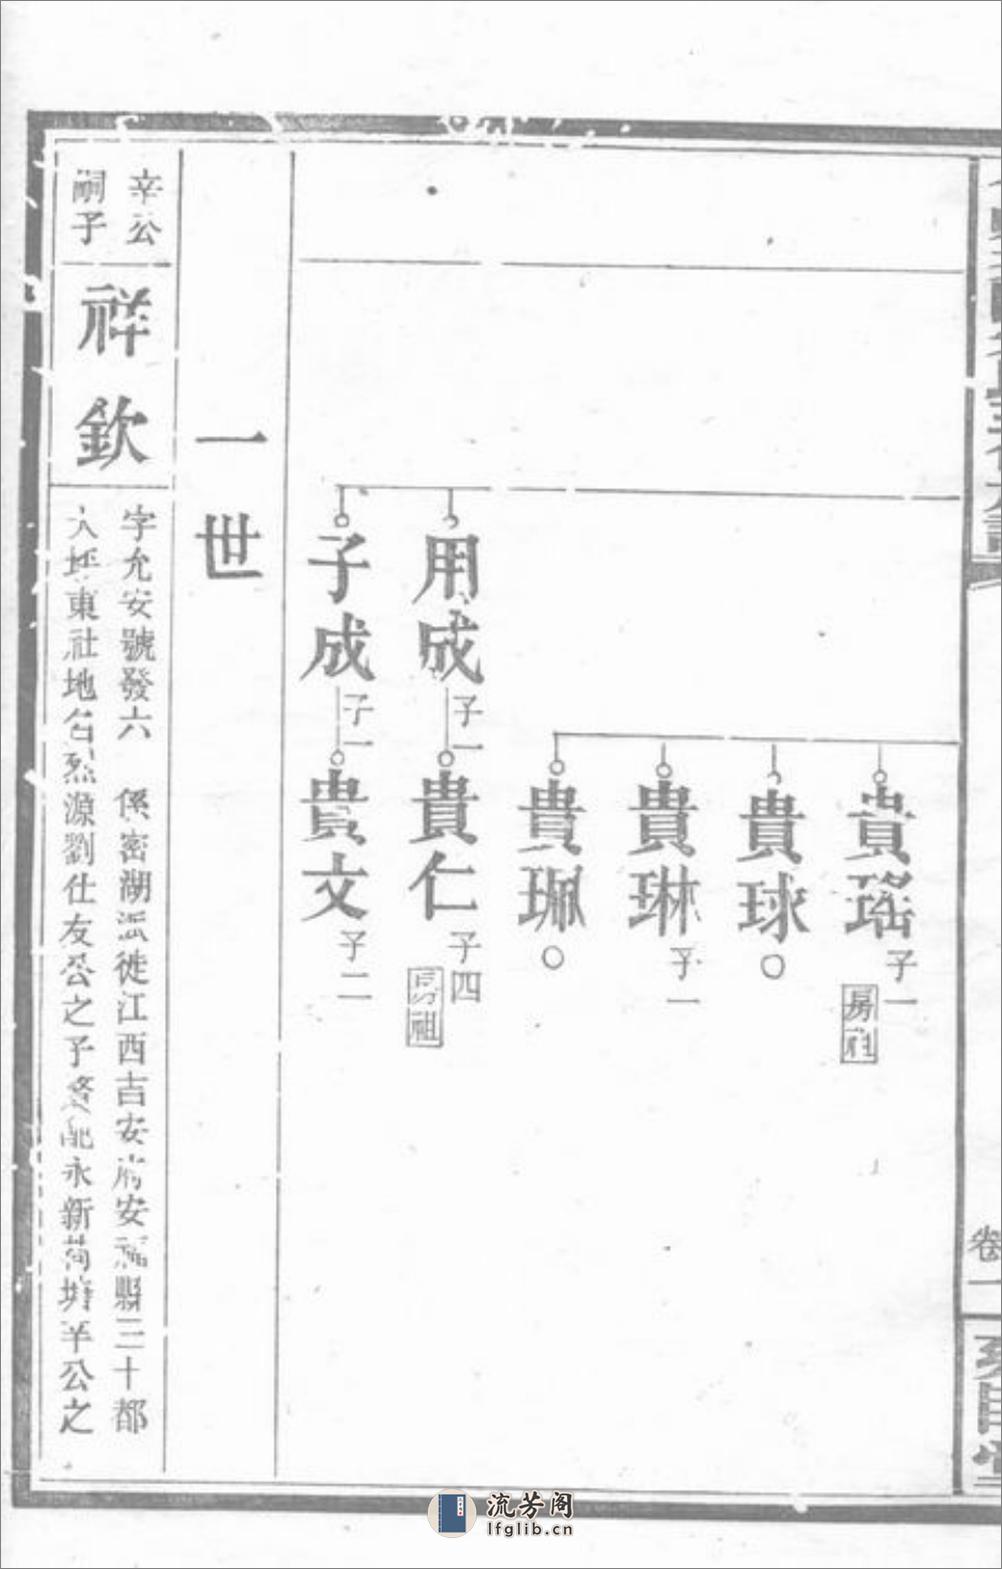 貴瑤
子一
房祖
貴球
○
貴琳
子一
貴珮
○
用成
子一
貴仁
子四
房祖
子成
子一
貴文
子二
一世
辛公
嗣子
祥欽
字允安號發六 係密湖派徙江西吉安府安福縣三十都
東社地名烈源劉仕友公之子 配永新 塘羊公之
卷一
流芳阁
lfglib.cn